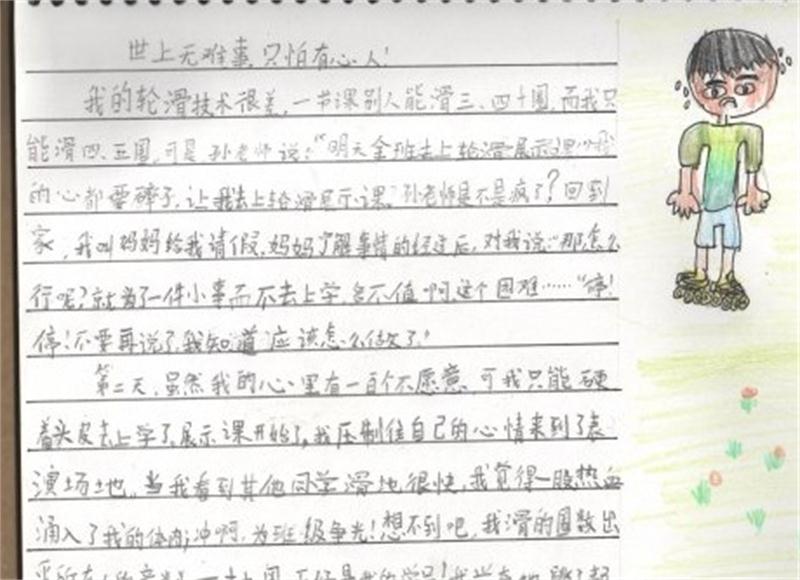 世上无难事,只怕有心人!
我的轮滑技术很差,一节课别人能滑三、四十圈,而我只
能滑四、五圈,可是孙老师说:“明天全班去上轮滑展示课!”我
的心都要碎了,让我去上轮滑展示课,孙老师是不是疯了?回到
家,我叫妈妈给我请假,妈妈了解事情的经过后,对我说:“那怎么
行呢?就为了一件小事而不去上学,多不值啊,这个困难……“停!
停!不要再说了,我知道应该怎么做了。”
第二天,虽然我的心里有一百个不愿意,可我只能硬
着头皮去上学了,展示课开始了,我压制住自己的心情来到了表
演场地。当我看到其他同学滑地很快,我觉得一股热血
涌入了我的体内;冲啊,为班级争光!想不到吧,我滑的圈数出